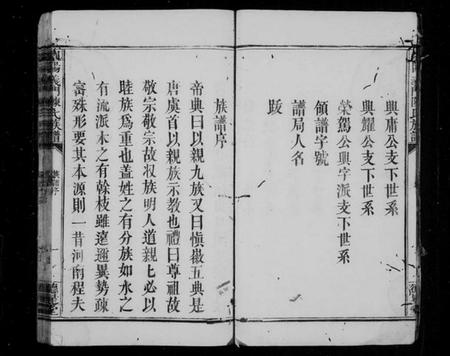 興甫公支下世系
興耀公支下世系
榮駕公興字派支下世系
領譜字號
譜局人名
跋
族譜序
帝典曰以親九族又曰愼徽五典是
唐虞首以親族示教也禮曰尊祖故
敬宗敬宗故収族明人道親親必以
睦族爲重也蓋姓之有分族如水之
有流派木之有榦枝雖遠邇異勢疎
宻殊形要其本源則一昔河南程夫